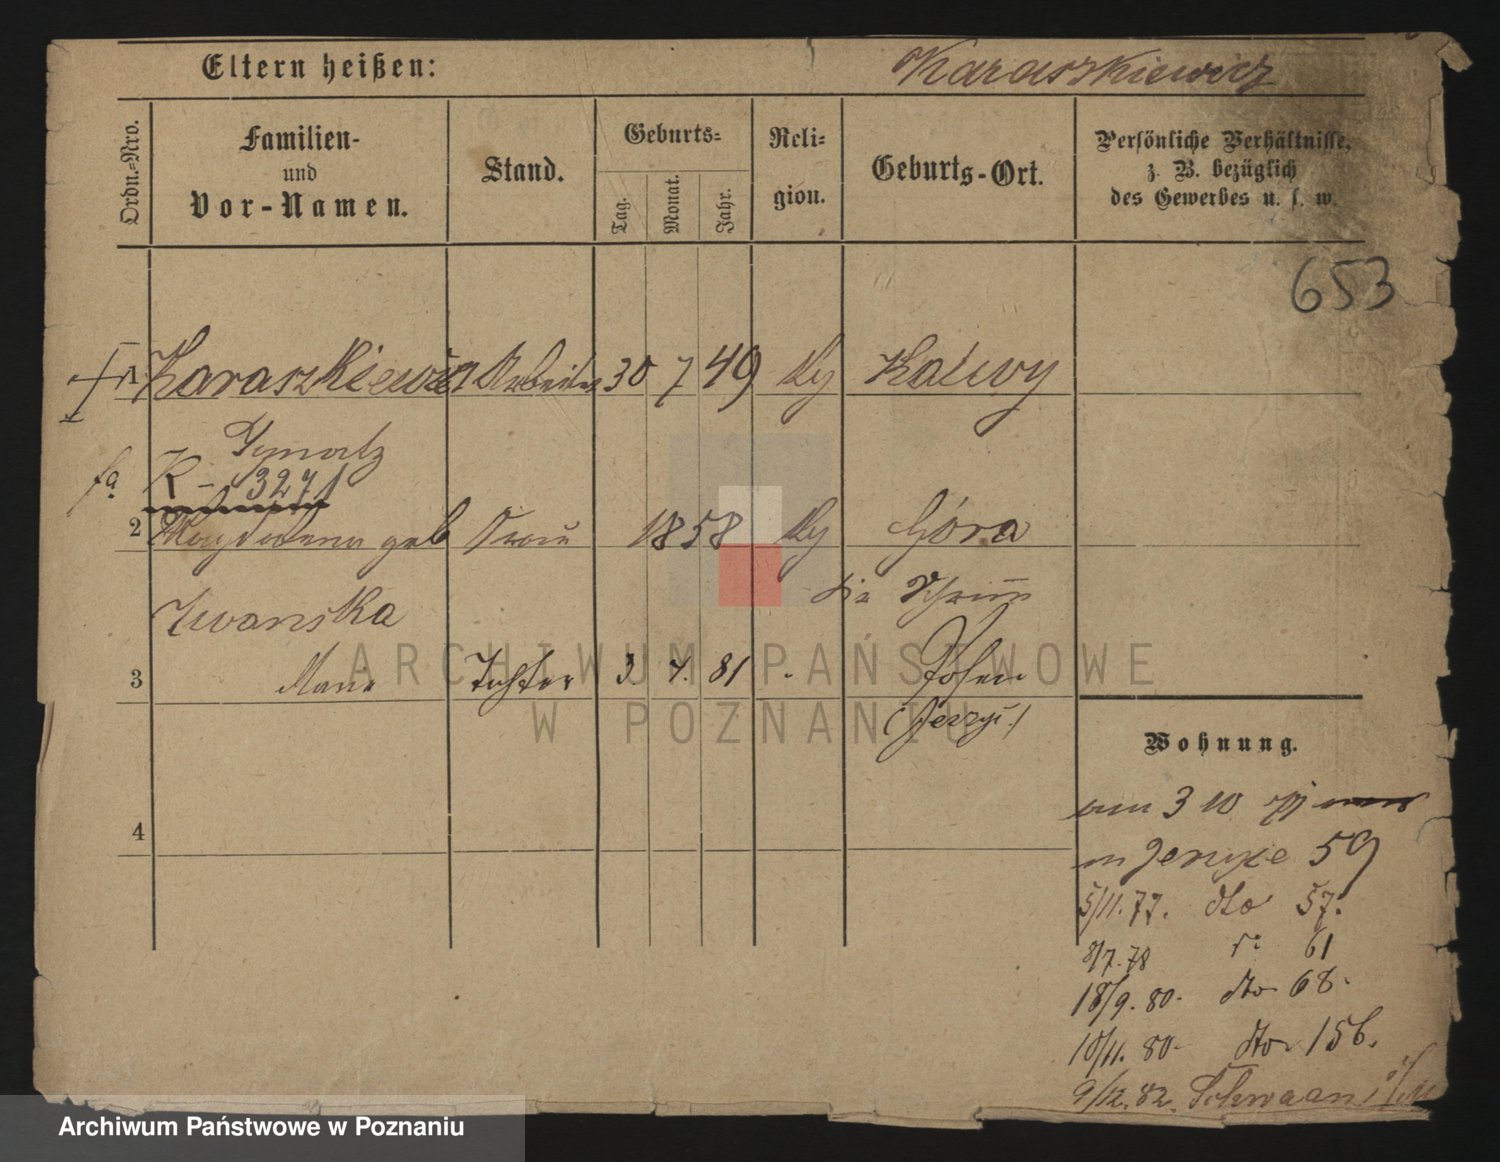 Eltern heißen: Karaszkiewicz
Ordn.-Nro. Familien- und Vor-Namen. Stand. Geburts- Tag. Monat. Jahr. Reli- gion. Geburts-Ort. Persönliche Verhältnisse, z. B. bezüglich des Gewerbes u. s. w.
653
1 Karaszkiewicz Arbeiter 30 7 49 Ky
Ignatz
K - 3271
2 Magdalena geb Frau 1858 Ky Góra
Schrimm
Iwanska
3 Marie Tochter 3. 4. 81 Posen
(Jerzyc)
ARCHIWUM PAŃSTWOWE
W POZNANIU
Wohnung.
4
3 10
in 59
5/11. 77. dto 57.
8/7. 78 61
18/9. 80. dto 68.
10/11. 80. dto 156.
9/12. 82.
Archiwum Państwowe w Poznaniu